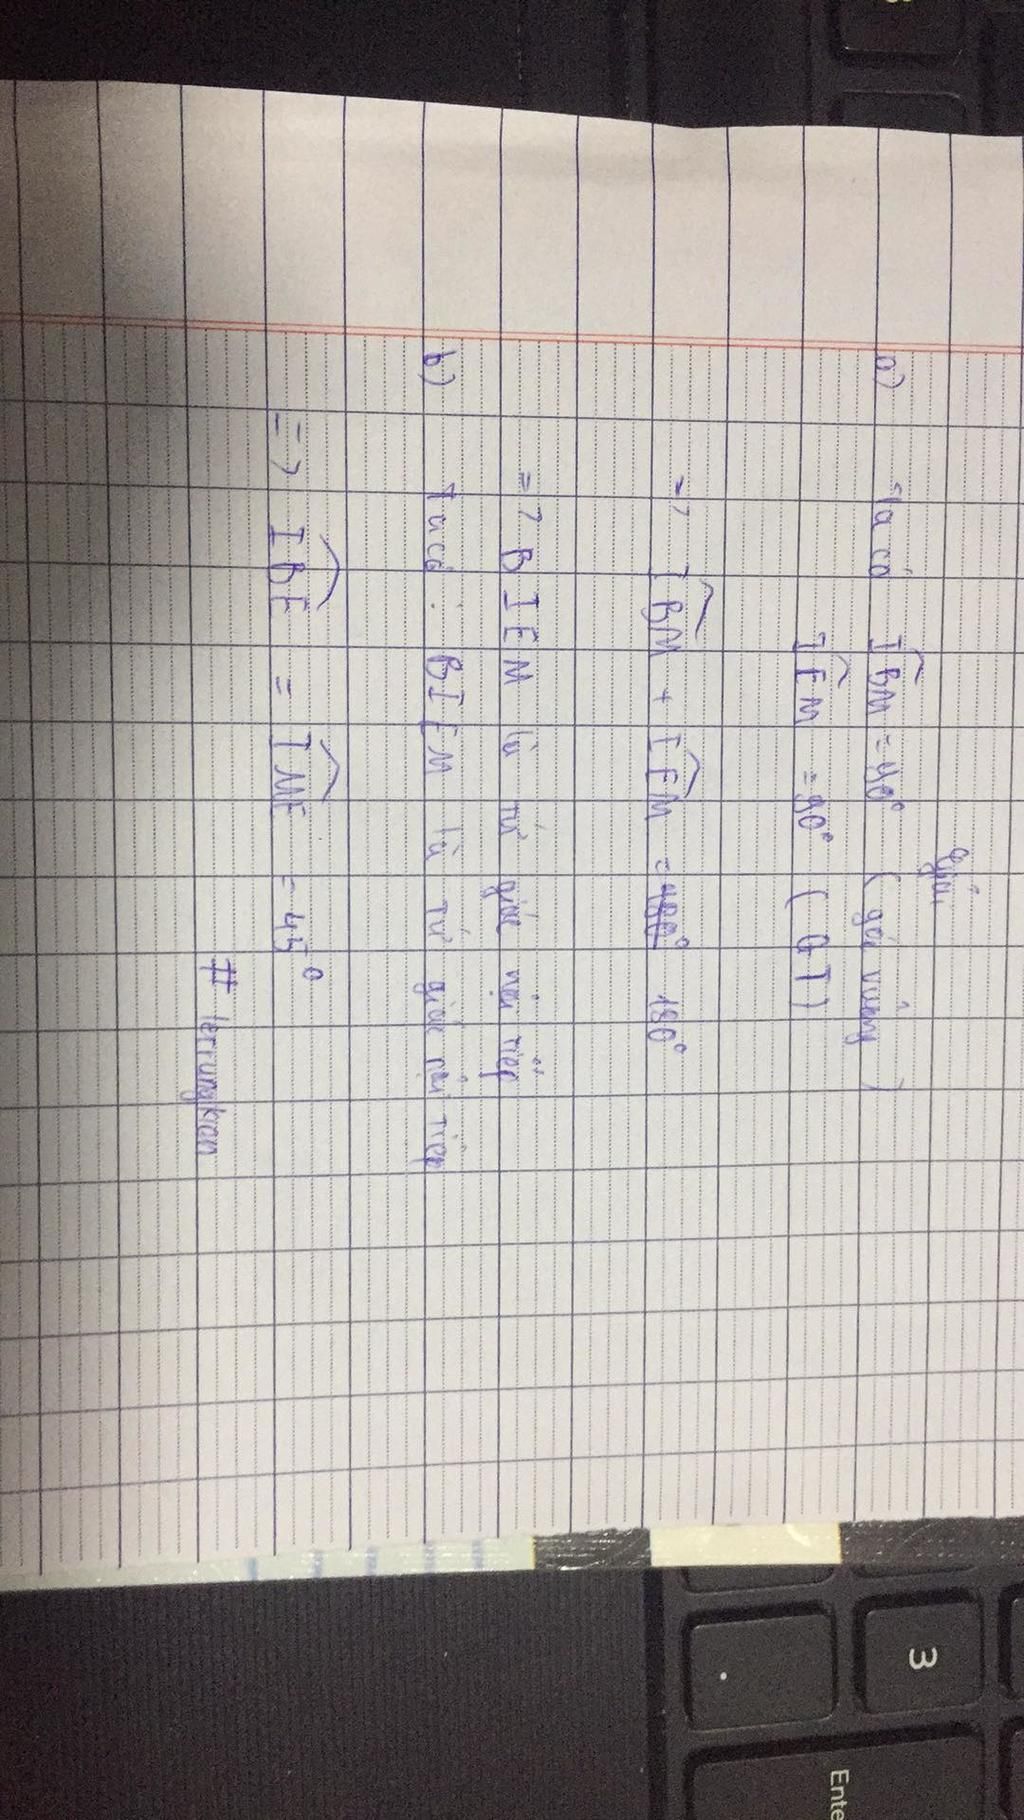 Giải
a) Ta có IBM = 90° ( góc vuông )
IEM = 90° ( GT )
=> IBM + IEM = 180°
=> BIEM là tứ giác nội tiếp
b) Ta có : BIEM là tứ giác nội tiếp
=> IBE = IME = 45°
# lerrungkien
3
.
Ente